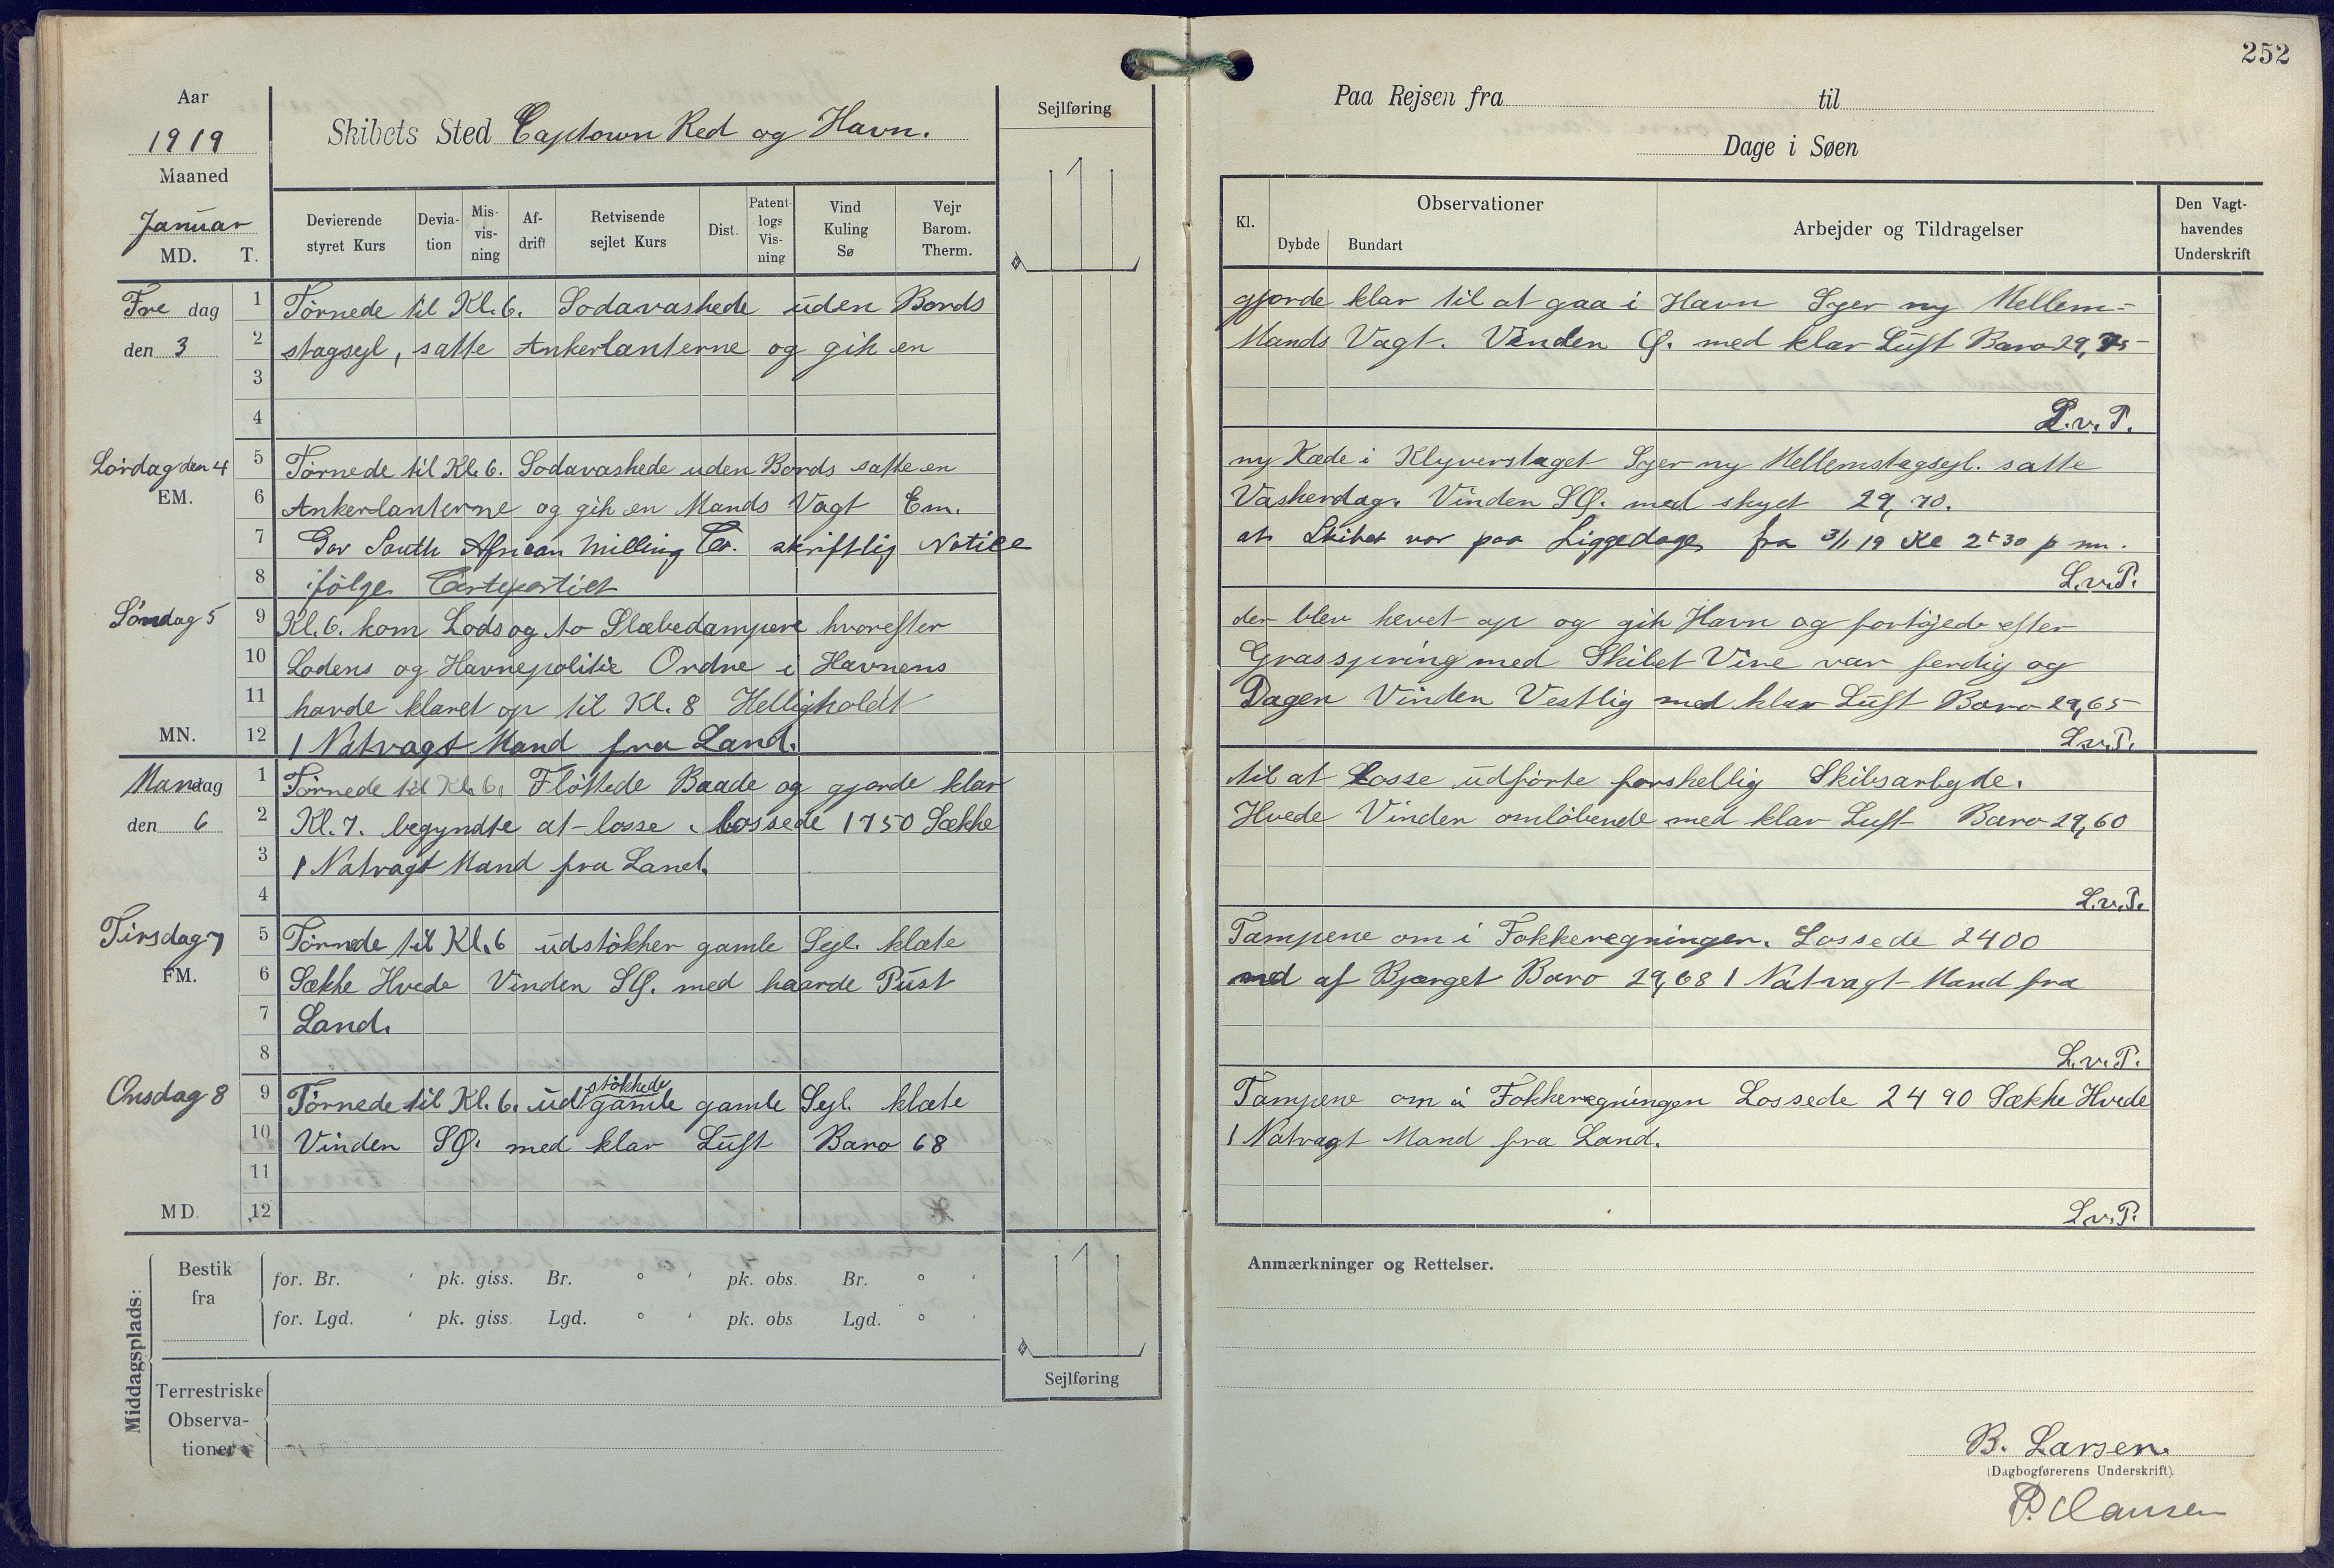 252
Aar
1919
Maaned
Januar
MD. T.
Skibets Sted Captown Red og Havn.
Sejlføring
Paa Rejsen fra til
Dage i Søen
Devierende styret Kurs
Devia-tion
Mis-vis-ning
Af-drift
Retvisende sejlet Kurs
Dist.
Patent-logs Vis-ning
Vind Kuling Sø
Vejr Barom. Therm.
Kl.
Observationer
Dybde Bundart
Arbejder og Tildragelser
Den Vagt-havendes Underskrift
Fre dag 1 Törnede til Kl. 6. Sodavaskede uden Bords gjorde klar til at gaa i Havn Syer ny Mellem=
den 3 2 stagsejl, satte Ankerlanterne og gik en Mands Vagt. Vinden Ø. med klar Luft Baro 29,75
3
4 L.v.P.
Lördag den 4 5 Törnede til Kl. 6. Sodavaskede uden Bords satte en ny Kæde i Klyverstaget Syer ny Mellemstagsejl. satte
EM. 6 Ankerlanterne og gik en Mands Vagt Em. Vaskerdag. Vinden SØ. med skyet 29,70.
7 Gav South African Milling Co. skriftlig Notice at Skibet var paa Liggedage fra 3/1 19 Kl 2t30 p m.
8 ifölge Certepartiet L.v.P.
Söndag 5 9 Kl. 6. kom Lods og to Slæbedampere hvorefter der blev hevet op og gik Havn og fortöjede efter
10 Lodens og Havnepolitie Ordre i Havnens Grasspring med Skibet Vire var ferdig og
11 havde klaret op til Kl. 8 Helligholdt Dagen Vinden Vestlig med klar Luft Baro 29,65
MN. 12 1 Natvagt Mand fra Land. L.v.P.
Mandag 1 Törnede til Kl. 6. Flöttede Baade og gjorde klar til at Losse udförte forskellig Skibsarbyde.
den 6 2 Kl. 7. begyndte at losse. Lossede 1750 Sække Hvede Vinden omlöbende med klar Luft Baro 29,60
3 1 Natvagt Mand fra Land.
4 L.v.P.
Tirsdag 7 5 Törnede til Kl. 6 udstökker gamle Sejl. klæte Tampene om i Fokkeregninger. Lossede 2400
FM. 6 Sække Hvede Vinden SØ. med haarde Pust ned af Bjærget Baro 29,68 1 Natvagt Mand fra
7 Land.
8 L.v.P.
Onsdag 8 9 Törnede til Kl. 6. ud stökkede gamle gamle Sejl. klæte Tampene om i Fokkeregningen Lossede 2490 Sække Hvede
10 Vinden SØ. med klar Luft Baro 68 1 Natvagt Mand fra Land.
11
MD. 12 L.v.P.
Middagsplads:
Bestik fra
for. Br. ' pk. giss. Br. ° ' pk. obs. Br. ° '
for. Lgd. ' pk. giss. Lgd. ° ' pk. obs. Lgd. ° '
Terrestriske Observa-tioner
Sejlføring
Anmærkninger og Rettelser.
B. Larsen.
(Dagbogførerens Underskrift).
P. Clausen